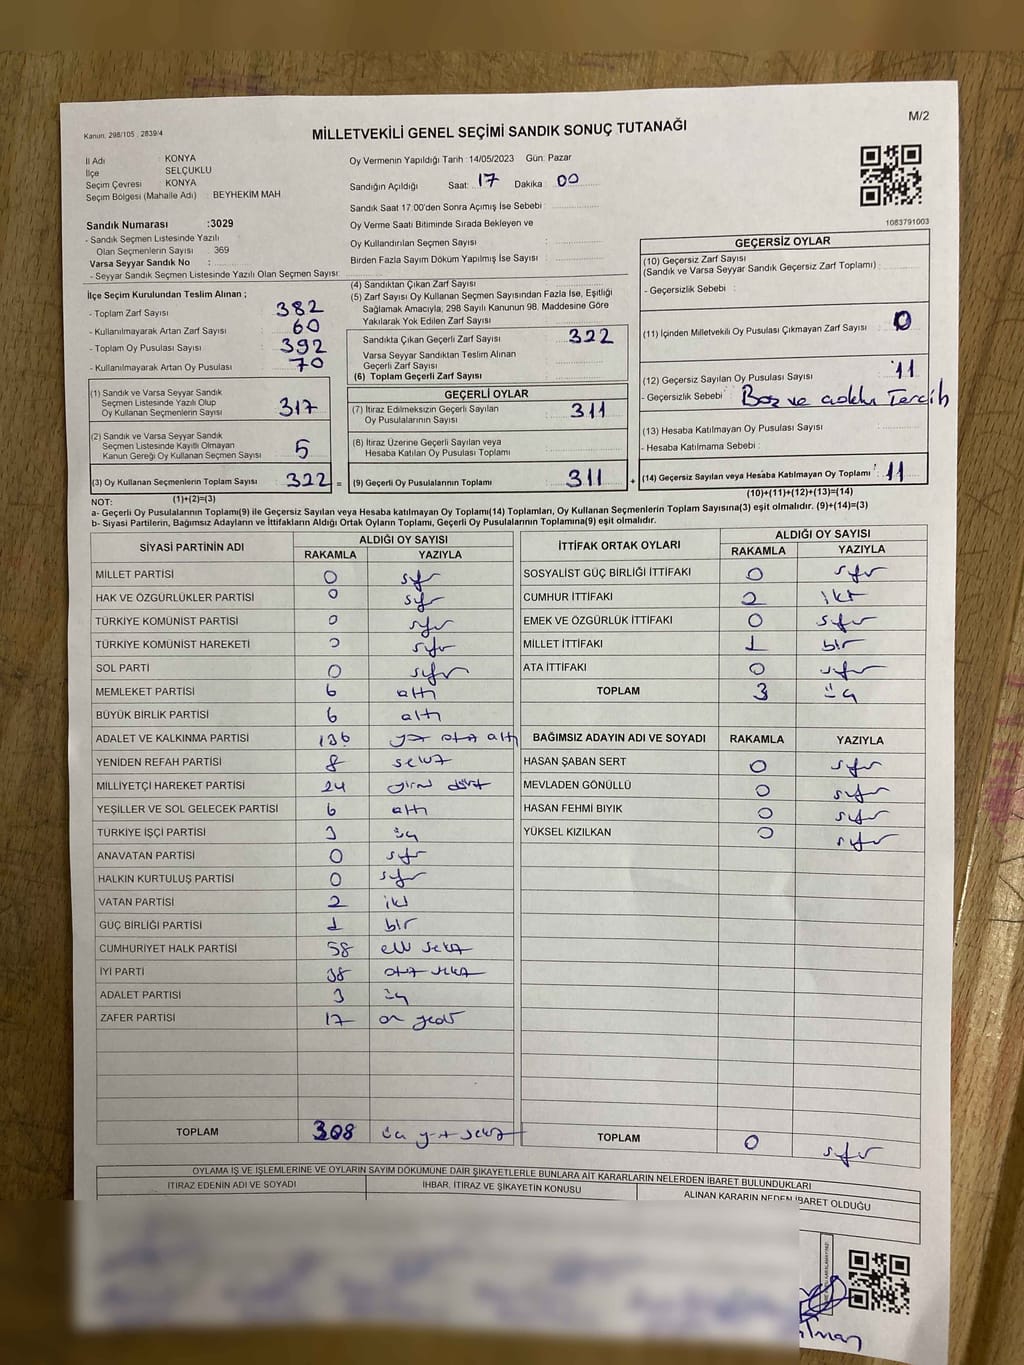 Kanun. 298/105 , 2839/4
MİLLETVEKİLİ GENEL SEÇİMİ SANDIK SONUÇ TUTANAĞI
M/2
İl Adı : KONYA
İlçe SELÇUKLU
Seçim Çevresi : KONYA
Seçim Bölgesi (Mahalle Adı) : BEYHEKİM MAH
Oy Vermenin Yapıldığı Tarih : 14/05/2023 Gün: Pazar
Sandığın Açıldığı Saat: 17 Dakika : 00
Sandık Saat 17:00'den Sonra Açımış İse Sebebi :
Oy Verme Saati Bitiminde Sırada Bekleyen ve
Oy Kullandırılan Seçmen Sayısı :
Birden Fazla Sayım Döküm Yapılmış İse Sayısı :
1083791003
Sandık Numarası :3029
- Sandık Seçmen Listesinde Yazılı
Olan Seçmenlerin Sayısı : 369
Varsa Seyyar Sandık No :
- Seyyar Sandık Seçmen Listesinde Yazılı Olan Seçmen Sayısı:
İlçe Seçim Kurulundan Teslim Alınan ;
- Toplam Zarf Sayısı : 382
- Kullanılmayarak Artan Zarf Sayısı : 60
- Toplam Oy Pusulası Sayısı : 392
- Kullanılmayarak Artan Oy Pusulası : 70
(1) Sandık ve Varsa Seyyar Sandık
Seçmen Listesinde Yazılı Olup
Oy Kullanan Seçmenlerin Sayısı : 317
(2) Sandık ve Varsa Seyyar Sandık
Seçmen Listesinde Kayıtlı Olmayan
Kanun Gereği Oy Kullanan Seçmen Sayısı : 5
(3) Oy Kullanan Seçmenlerin Toplam Sayısı : 322 =
(4) Sandıktan Çıkan Zarf Sayısı :
(5) Zarf Sayısı Oy Kullanan Seçmen Sayısından Fazla İse, Eşitliği
Sağlamak Amacıyla, 298 Sayılı Kanunun 98. Maddesine Göre
Yakılarak Yok Edilen Zarf Sayısı :
Sandıkta Çıkan Geçerli Zarf Sayısı : 322
Varsa Seyyar Sandıktan Teslim Alınan
Geçerli Zarf Sayısı :
(6) Toplam Geçerli Zarf Sayısı :
GEÇERLİ OYLAR
(7) İtiraz Edilmeksizin Geçerli Sayılan
Oy Pusulalarının Sayısı : 311
(8) İtiraz Üzerine Geçerli Sayılan veya
Hesaba Katılan Oy Pusulası Toplamı :
(9) Geçerli Oy Pusulalarının Toplamı : 311 +
GEÇERSİZ OYLAR
(10) Geçersiz Zarf Sayısı
(Sandık ve Varsa Seyyar Sandık Geçersiz Zarf Toplamı) :
- Geçersizlik Sebebi :
(11) İçinden Milletvekili Oy Pusulası Çıkmayan Zarf Sayısı : 0
(12) Geçersiz Sayılan Oy Pusulası Sayısı : 11
- Geçersizlik Sebebi : Boş ve çoklu Tercih
(13) Hesaba Katılmayan Oy Pusulası Sayısı :
- Hesaba Katılmama Sebebi :
(14) Geçersiz Sayılan veya Hesaba Katılmayan Oy Toplamı : 11
NOT: (1)+(2)=(3)
(10)+(11)+(12)+(13)=(14)
a- Geçerli Oy Pusulalarının Toplamı(9) ile Geçersiz Sayılan veya Hesaba katılmayan Oy Toplamı(14) Toplamları, Oy Kullanan Seçmenlerin Toplam Sayısına(3) eşit olmalıdır. (9)+(14)=(3)
b- Siyasi Partilerin, Bağımsız Adayların ve İttifakların Aldığı Ortak Oyların Toplamı, Geçerli Oy Pusulalarının Toplamına(9) eşit olmalıdır.
SİYASİ PARTİNİN ADI ALDIĞI OY SAYISI
RAKAMLA YAZIYLA
MİLLET PARTİSİ 0 sıfır
HAK VE ÖZGÜRLÜKLER PARTİSİ 0 sıfır
TÜRKİYE KOMÜNİST PARTİSİ 0 sıfır
TÜRKİYE KOMÜNİST HAREKETİ 0 sıfır
SOL PARTİ 0 sıfır
MEMLEKET PARTİSİ 6 altı
BÜYÜK BİRLİK PARTİSİ 6 altı
ADALET VE KALKINMA PARTİSİ 136 yüz otuz altı
YENİDEN REFAH PARTİSİ 8 sekiz
MİLLİYETÇİ HAREKET PARTİSİ 24 yirmi dört
YEŞİLLER VE SOL GELECEK PARTİSİ 6 altı
TÜRKİYE İŞÇİ PARTİSİ 3 üç
ANAVATAN PARTİSİ 0 sıfır
HALKIN KURTULUŞ PARTİSİ 0 sıfır
VATAN PARTİSİ 2 iki
GÜÇ BİRLİĞİ PARTİSİ 1 bir
CUMHURİYET HALK PARTİSİ 58 elli sekiz
İYİ PARTİ 38 otuz sekiz
ADALET PARTİSİ 3 üç
ZAFER PARTİSİ 17 on yedi
TOPLAM 308 üç yüz sekiz
İTTİFAK ORTAK OYLARI ALDIĞI OY SAYISI
RAKAMLA YAZIYLA
SOSYALİST GÜÇ BİRLİĞİ İTTİFAKI 0 sıfır
CUMHUR İTTİFAKI 2 iki
EMEK VE ÖZGÜRLÜK İTTİFAKI 0 sıfır
MİLLET İTTİFAKI 1 bir
ATA İTTİFAKI 0 sıfır
TOPLAM 3 üç
BAĞIMSIZ ADAYIN ADI VE SOYADI RAKAMLA YAZIYLA
HASAN ŞABAN SERT 0 sıfır
MEVLADEN GÖNÜLLÜ 0 sıfır
HASAN FEHMİ BIYIK 0 sıfır
YÜKSEL KIZILKAN 0 sıfır
TOPLAM 0 sıfır
OYLAMA İŞ VE İŞLEMLERİNE VE OYLARIN SAYIM DÖKÜMÜNE DAİR ŞİKAYETLERLE BUNLARA AİT KARARLARIN NELERDEN İBARET BULUNDUKLARI
İTİRAZ EDENİN ADI VE SOYADI İHBAR, İTİRAZ VE ŞİKAYETİN KONUSU ALINAN KARARIN NEDEN İBARET OLDUĞU